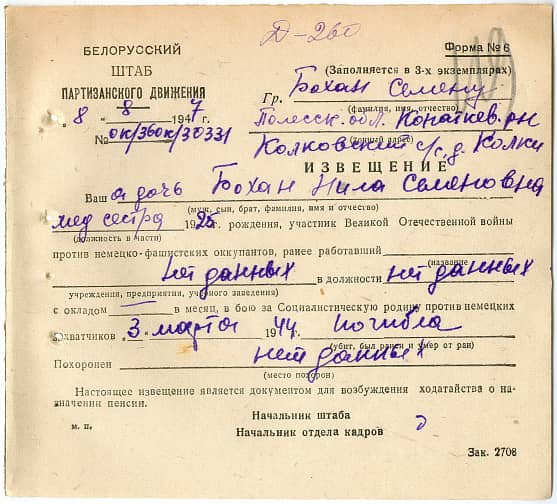 Д-260
БЕЛОРУССКИЙ
ШТАБ
ПАРТИЗАНСКОГО ДВИЖЕНИЯ
"8" 8 1947
№ ок/360к/30331
Форма № 6
(Заполняется в 3-х экземплярах)
Гр. Бохан Семену
(фамилия, имя, отчество)
Полесск. обл. Копаткев. р-н
(точный адрес)
Колковский с/с, д. Колки
ИЗВЕЩЕНИЕ
Ваша дочь Бохан Нила Семеновна
(муж, сын, брат, фамилия, имя и отчество)
мед сестра 1925 рождения, участник Великой Отечественной войны
(должность в части)
против немецко-фашистских оккупантов, ранее работавший
(название
нет данных в должности нет данных
учреждения, предприятия, учебного заведения)
с окладом — в месяц, в бою за Социалистическую родину против немецких
захватчиков 3. марта 1944 погибла
(убит, был ранен и умер от ран)
Похоронен нет данных
(место похорон)
Настоящее извещение является документом для возбуждения ходатайства о на-
значении пенсии.
Начальник штаба
м. п.
Начальник отдела кадров
Зак. 2708